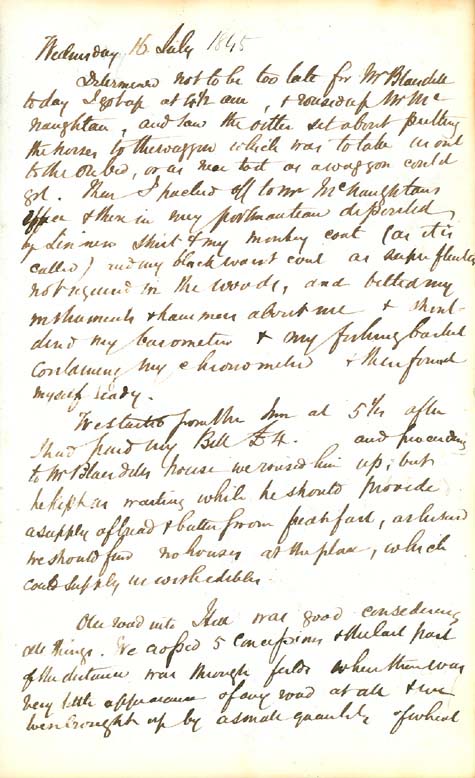 Wednesday 16 July 1845
Determined not to be too late for Mr Blaisdell
today I got up at 4½ am, & roused up Mr Mc
Naughtan, and saw the ostler set about putting
the horses to the waggon which was to take us out
to the ore bed, or as near to it as a waggon could
get. Then I packed off to Mr McNaughtans
office & then in my portmanteau deposited
my linen new shirt & my monkey coat (as it is
called) and my black waist coat as superfluities
not required in the woods, and belted my
instruments & hammers about me & shoul-
dered my barometer & my fishing basket
containing my chronometer & then found
myself ready.
We started from the Inn at 5 after
I had paid my Bill £4. and proceeding
to Mr Blaisdells house we roused him up; but
he kept us waiting while he should provide
a supply of bread & butter from breakfast, as he said
we should find no houses at the place, which
could supply us with edibles.
Our road into was good considering
all things. We crossed 5 concessions & the last part
of the distance was through fields where there was
very little appearance of any road at all & we
were brought up by a small quantity of wheat